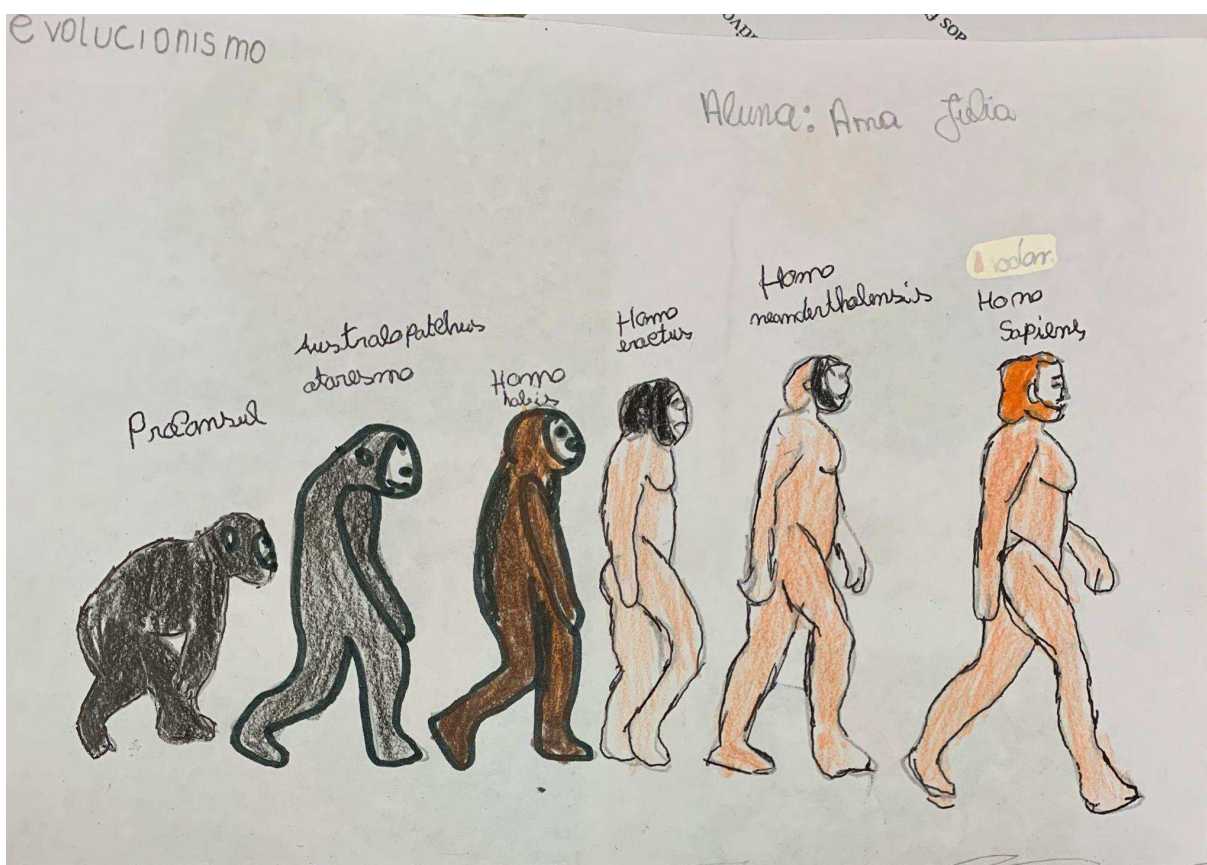 evolucionismo
Aluna: Ana Júlia
Proconsul
Australopatehus
ataresmo
Homo
habis
Homo
eraetus
Homo
neanderthalensis
Homo
Sapiens